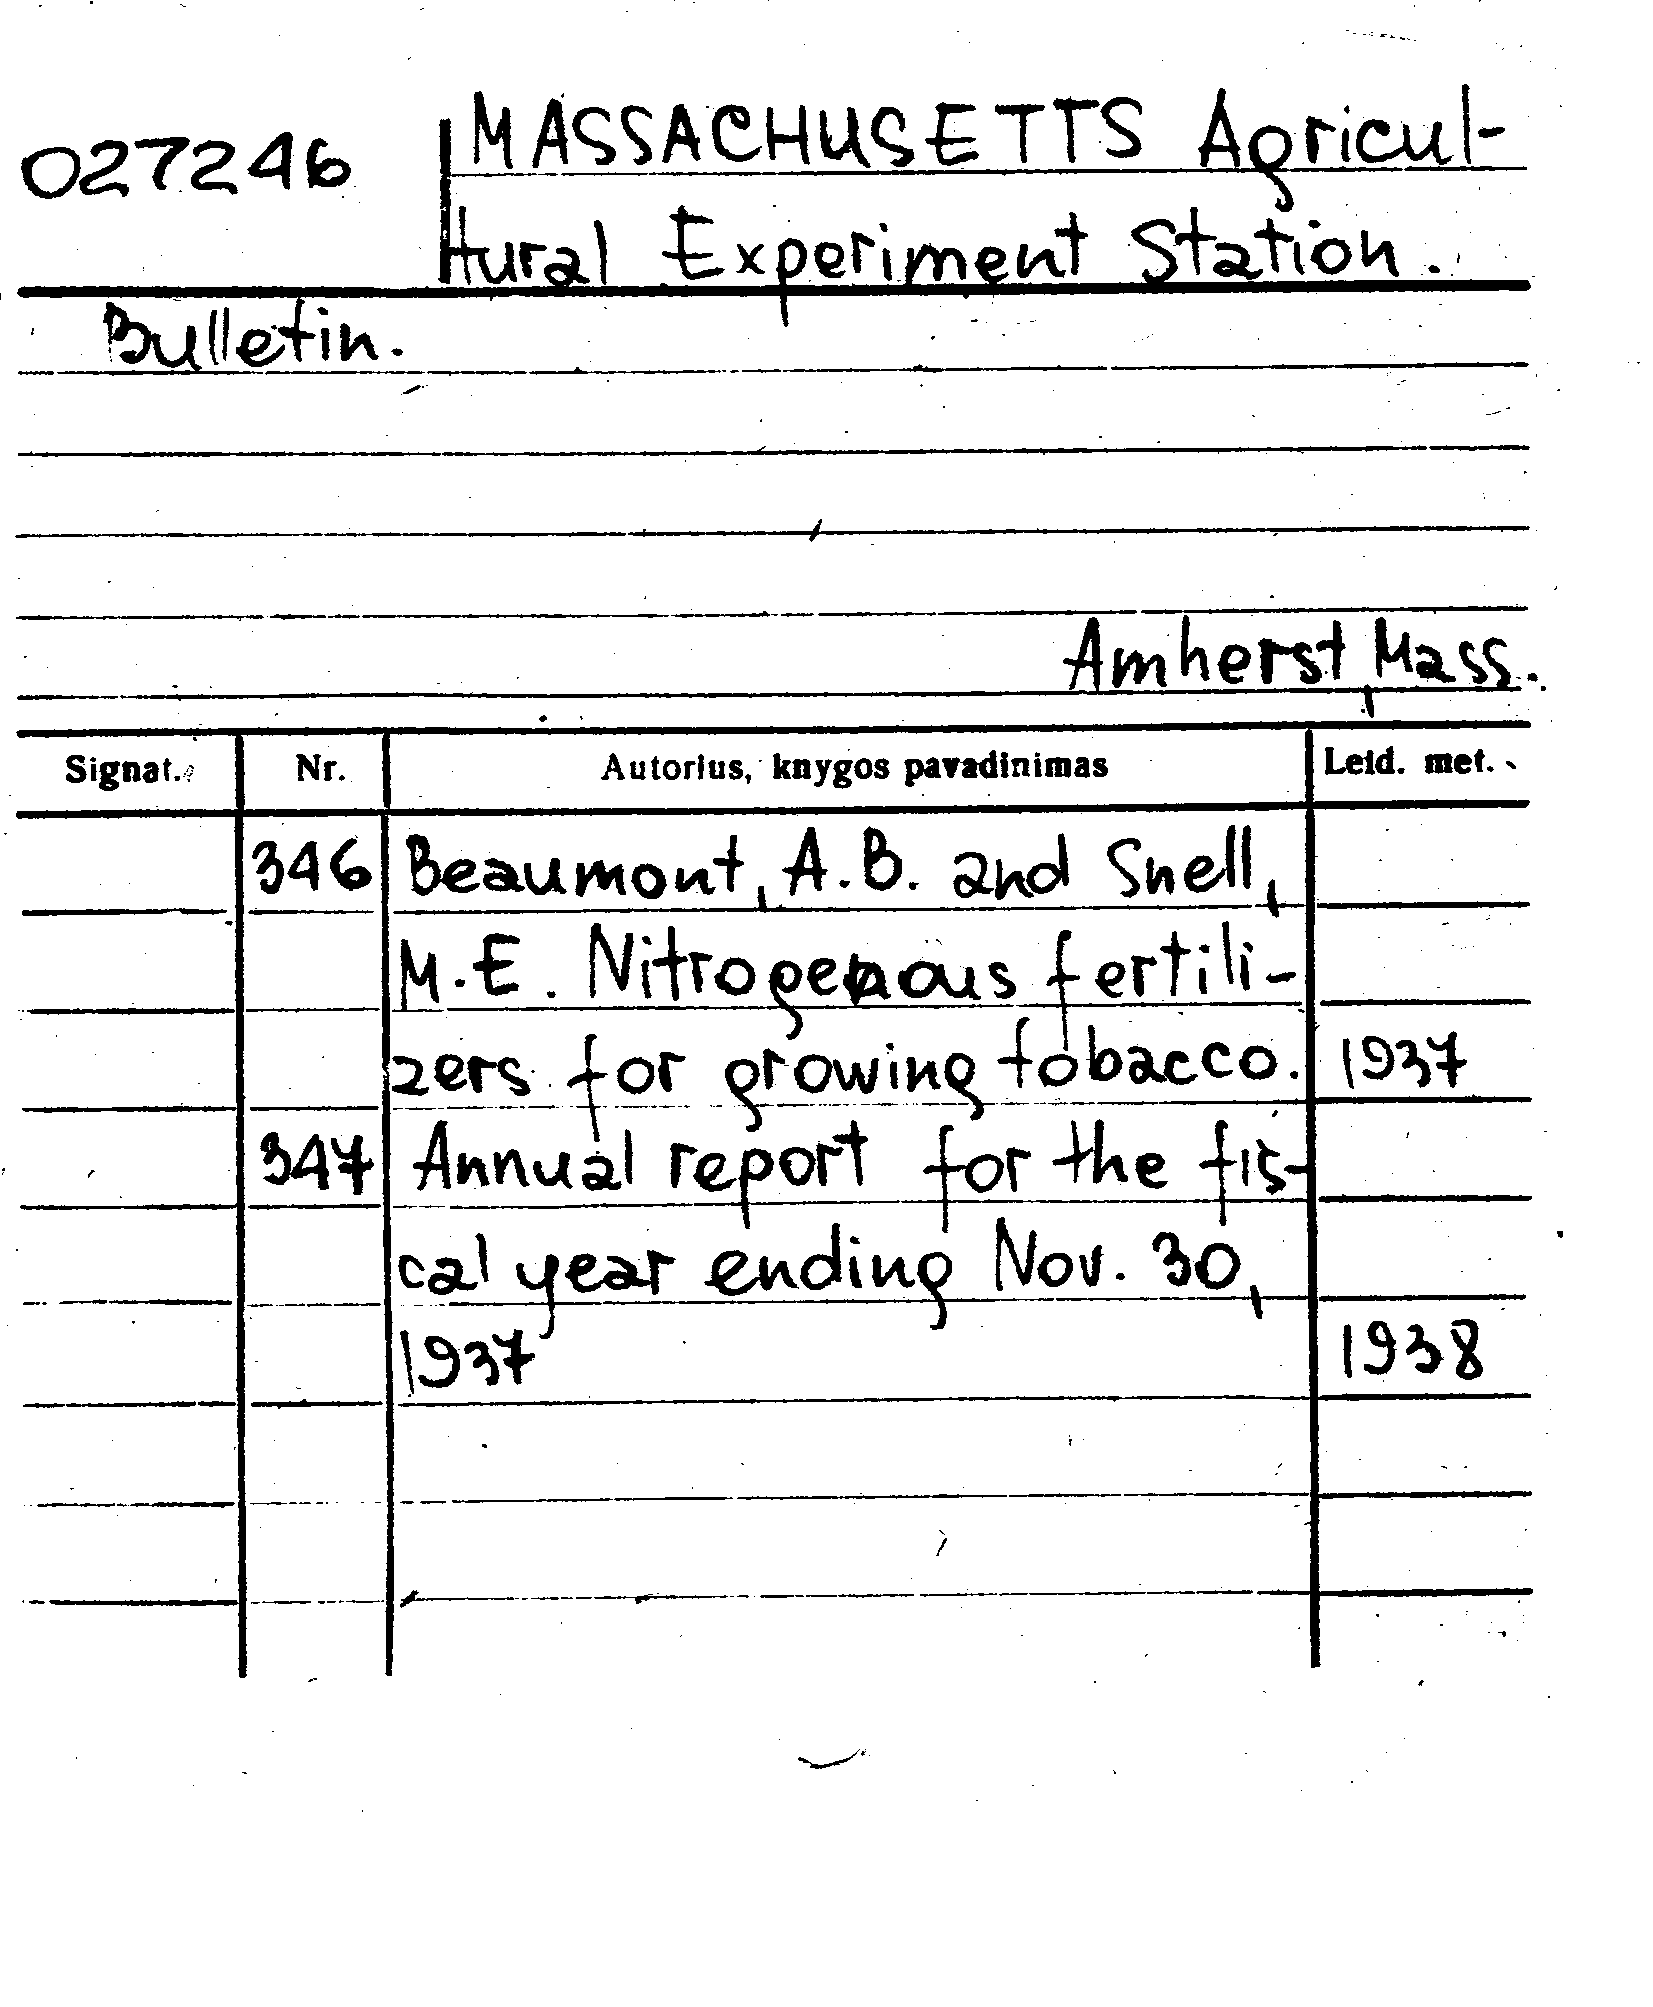 027246
MASSACHUSETTS Agricul-
tural Experiment Station.
Bulletin.
Amherst, Mass.
Signat. Nr. Autorius, knygos pavadinimas Leid. met.
346 Beaumont, A.B. and Snell,
M.E. Nitrogenous fertili-
zers for growing tobacco. 1937
347 Annual report for the fis-
cal year ending Nov. 30,
1937 1938